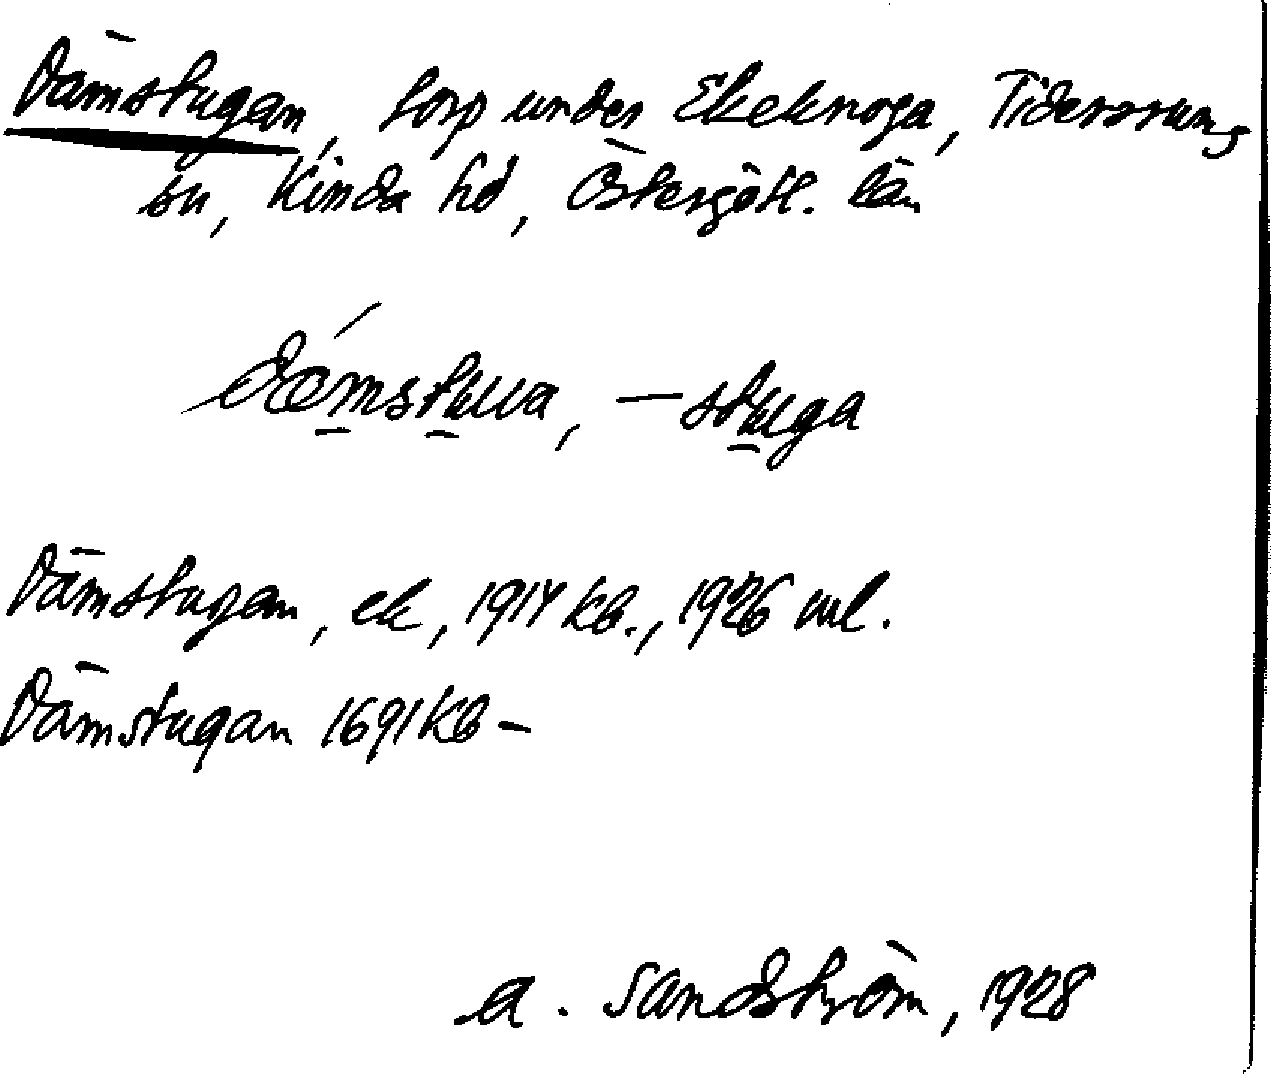 Dämstugan, torp under Ekeknoga, Tidersrums
sn, Kinda hd, Östergötl. län
dǽmstuua, —stuga
Dämstugan, ek, 1914 kb., 1926 ml.
Dämstugan 1691 kb –
A. Sandström, 1928